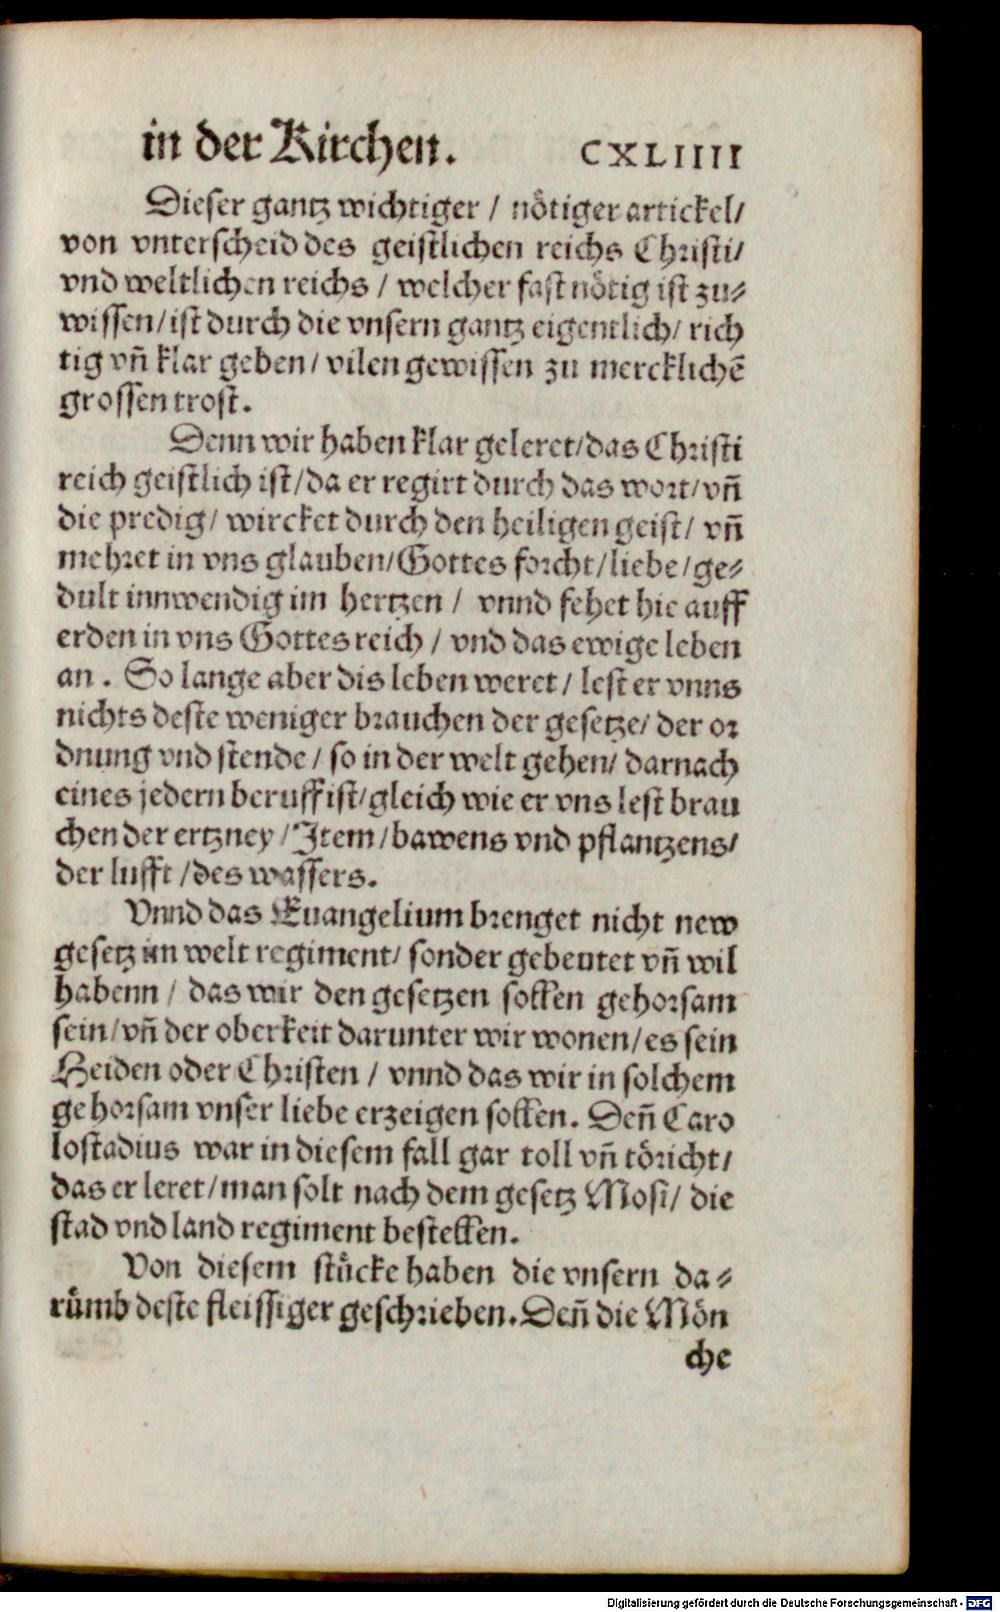 in der Kirchen. CXLIIII
Dieser gantz wichtiger / nötiger artickel/
von vnterscheid des geistlichen reichs Christi/
vnd weltlichen reichs / welcher fast nötig ist zu⸗
wissen/ist durch die vnsern gantz eigentlich/ rich
tig vn̄ klar geben/ vilen gewissen zu mercklichē
grossen trost.
Denn wir haben klar geleret/das Christi
reich geistlich ist/da er regirt durch das wort/vn̄
die predig/ wircket durch den heiligen geist/ vn̄
mehret in vns glauben/Gottes forcht/liebe/ge⸗
dult innwendig im hertzen / vnnd fehet hie auff
erden in vns Gottes reich / vnd das ewige leben
an . So lange aber dis leben weret / lest er vnns
nichts deste weniger brauchen der gesetze/ der or
dnung vnd stende / so in der welt gehen/ darnach
eines jedern beruff ist/gleich wie er vns lest brau
chen der ertzney /Item /bawens vnd pflantzens/
der lufft /des wassers.
Vnnd das Euangelium brenget nicht new
gesetz im welt regiment/ sonder gebeutet vn̄ wil
habenn / das wir den gesetzen sollen gehorsam
sein/vn̄ der oberkeit darunter wir wonen/es sein
Heiden oder Christen / vnnd das wir in solchem
gehorsam vnser liebe erzeigen sollen. Den̄ Caro
lostadius war in diesem fall gar toll vn̄ töricht/
das er leret/man solt nach dem gesetz Mosi/ die
stad vnd land regiment bestellen.
Von diesem stücke haben die vnsern da⸗
rümb deste fleissiger geschrieben. Den̄ die Mön
che
Digitalisierung gefördert durch die Deutsche Forschungsgemeinschaft - DFG